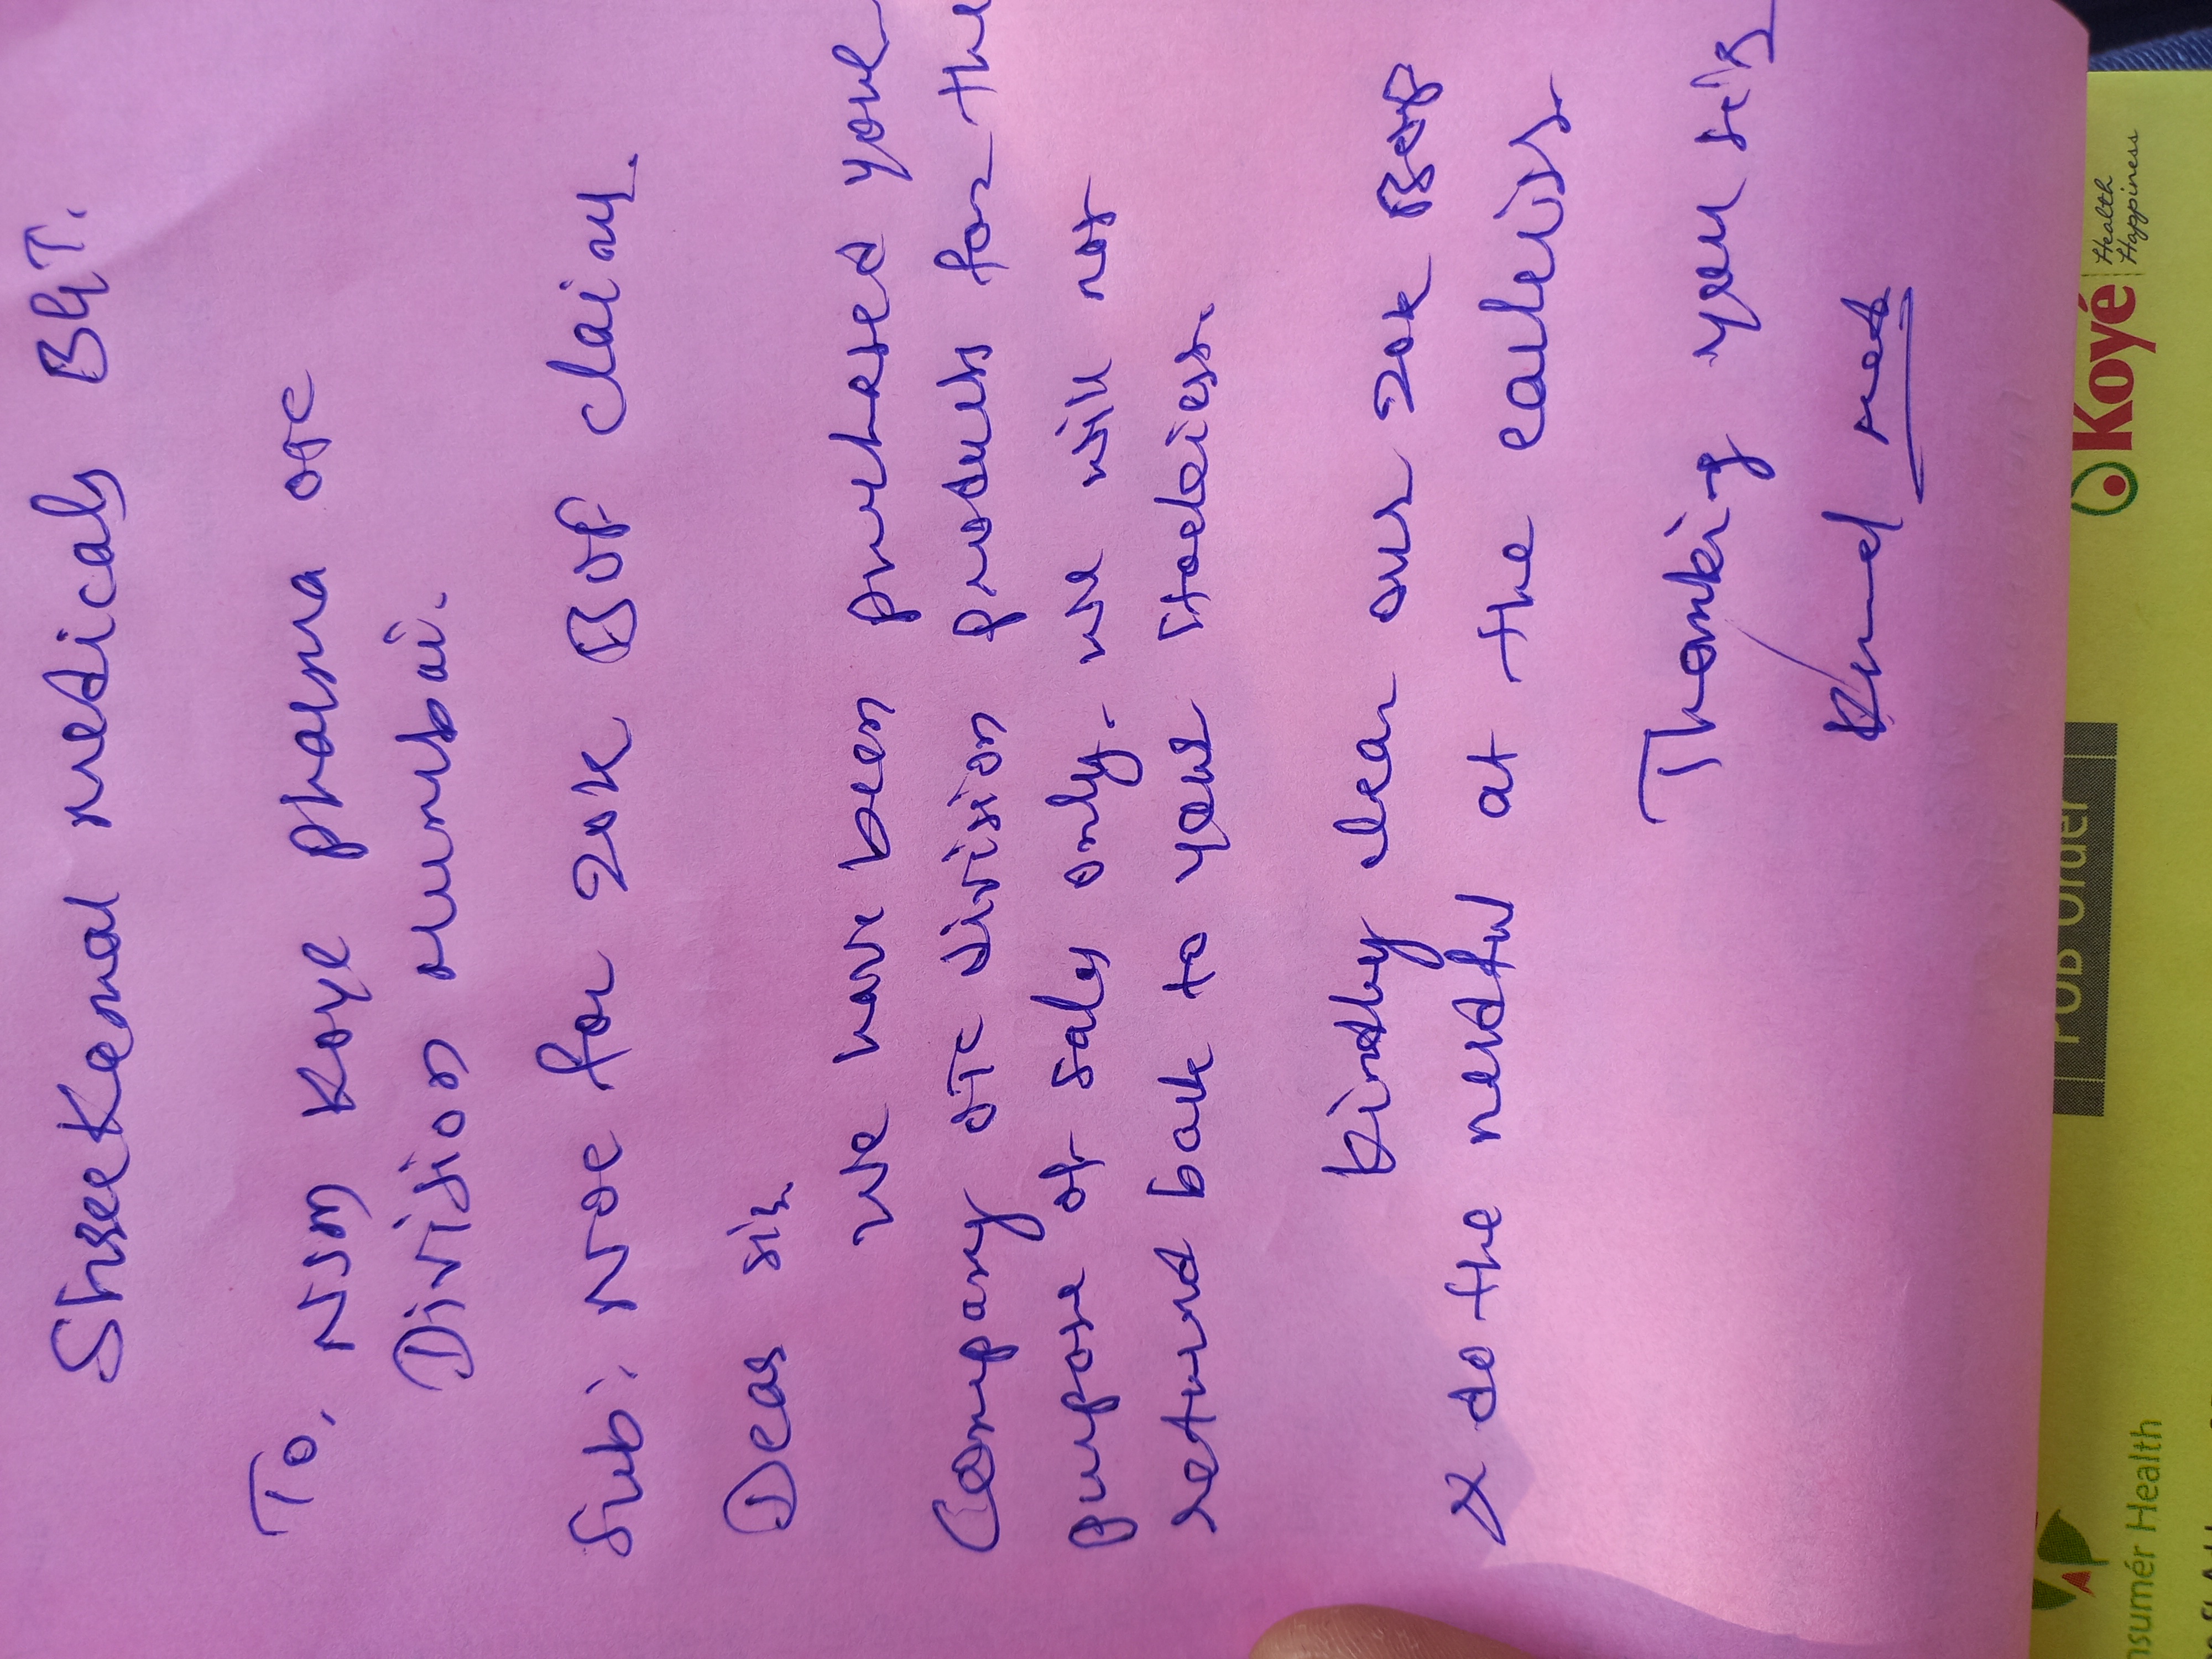 Shree Kamal medicals BGT.
To, NSM Koye pharma OTC
Division mumbai.
Sub: NOC for 20K BOP claim.
Dear sir
We have been purchased your
Company OTC division products for the
purpose of sales only. we will not
returnd back to your stockiest.
Kindly clear our 20K BOP
& do the needful at the earliest
Thanking you sir
POB Order
Koyé
Health
Happiness
nsumér Health